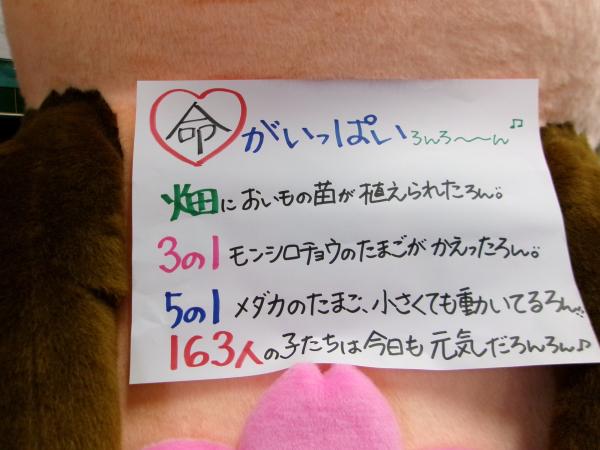 命がいっぱいろんろ〜〜ん♪
畑においもの苗が植えられたろん。
3の1 モンシロチョウのたまごがかえったろん。
5の1 メダカのたまご、小さくても動いてるろん。
163人の子たちは今日も元気だろんろん♪